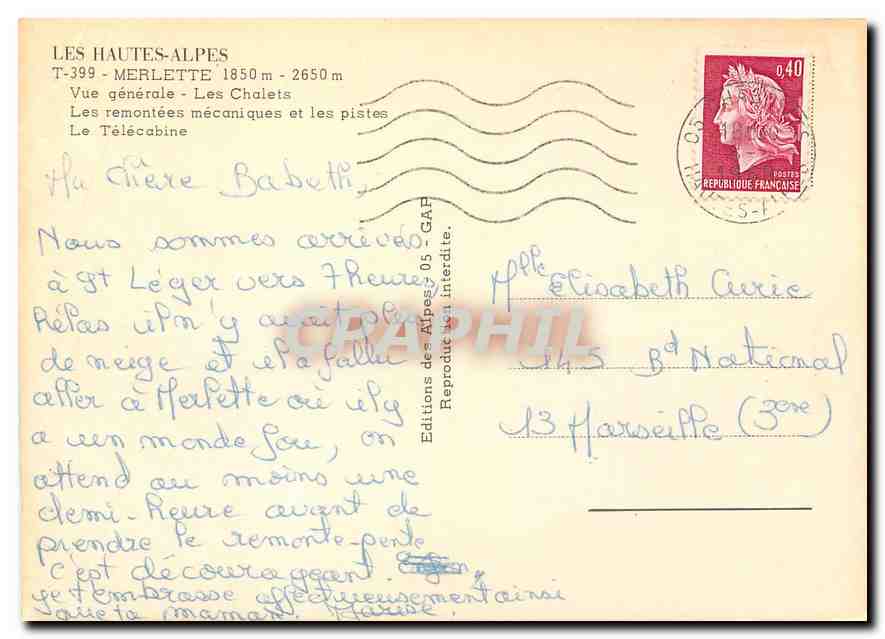 LES HAUTES-ALPES
T-399 - MERLETTE 1850 m - 2650 m
Vue générale - Les Chalets
Les remontées mécaniques et les pistes
Le Télécabine
0,40
POSTES
REPUBLIQUE FRANÇAISE
05
Ma chère Babeth,
Nous sommes arrivés
à St Léger vers 7 heures,
hélas il n'y avait plus
de neige et il a fallu
aller à Merlette où il y
a un monde fou, on
attend au moins une
demi-heure avant de
prendre le remonte-pente
c'est décourageant.
je t'embrasse affectueusement ainsi
que ta maman.
Editions des Alpes - 05 - GAP
Reproduction interdite.
Mlle Elisabeth Curie
145 Bd National
13 Marseille (3ème)
CPAPHIL